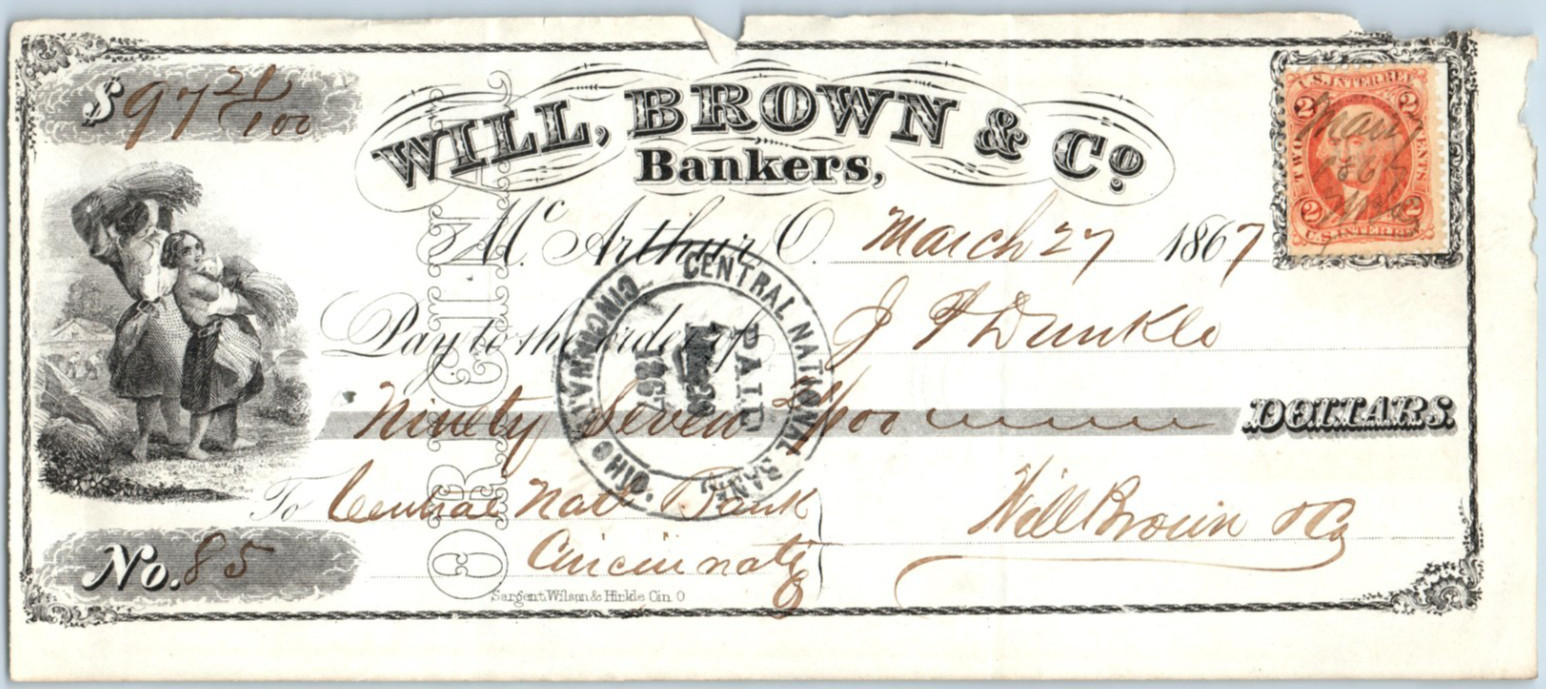 $97 21/100
WILL, BROWN & Co
Bankers,
Mc Arthur, O. March 27 1867
Pay to the order of J F Dunkle
Ninety Seven 21/100 DOLLARS.
To Central Natl Bank
Cincinnati
O
Will Brown & Co
No. 85
ORIGINAL
Sargent, Wilson & Hinkle Cin. O
CENTRAL NATIONAL BANK
CINCINNATI OHIO.
PAID
1867
U.S. INTER REV.
2 2
TWO CENTS
2 2
U.S. INTER REV.
Mar
1867